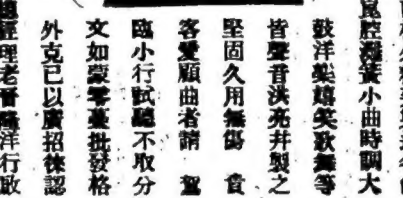 崑腔灘黃小曲時調大
鼓洋樂嬉笑歌舞等
皆聲音洪亮井製之
堅固久用無傷 貴
客愛顧曲者請 駕
臨小行試聽不取分
文如蒙零躉批發格
外克已以廣招徠認
經理老晉隆洋行啟